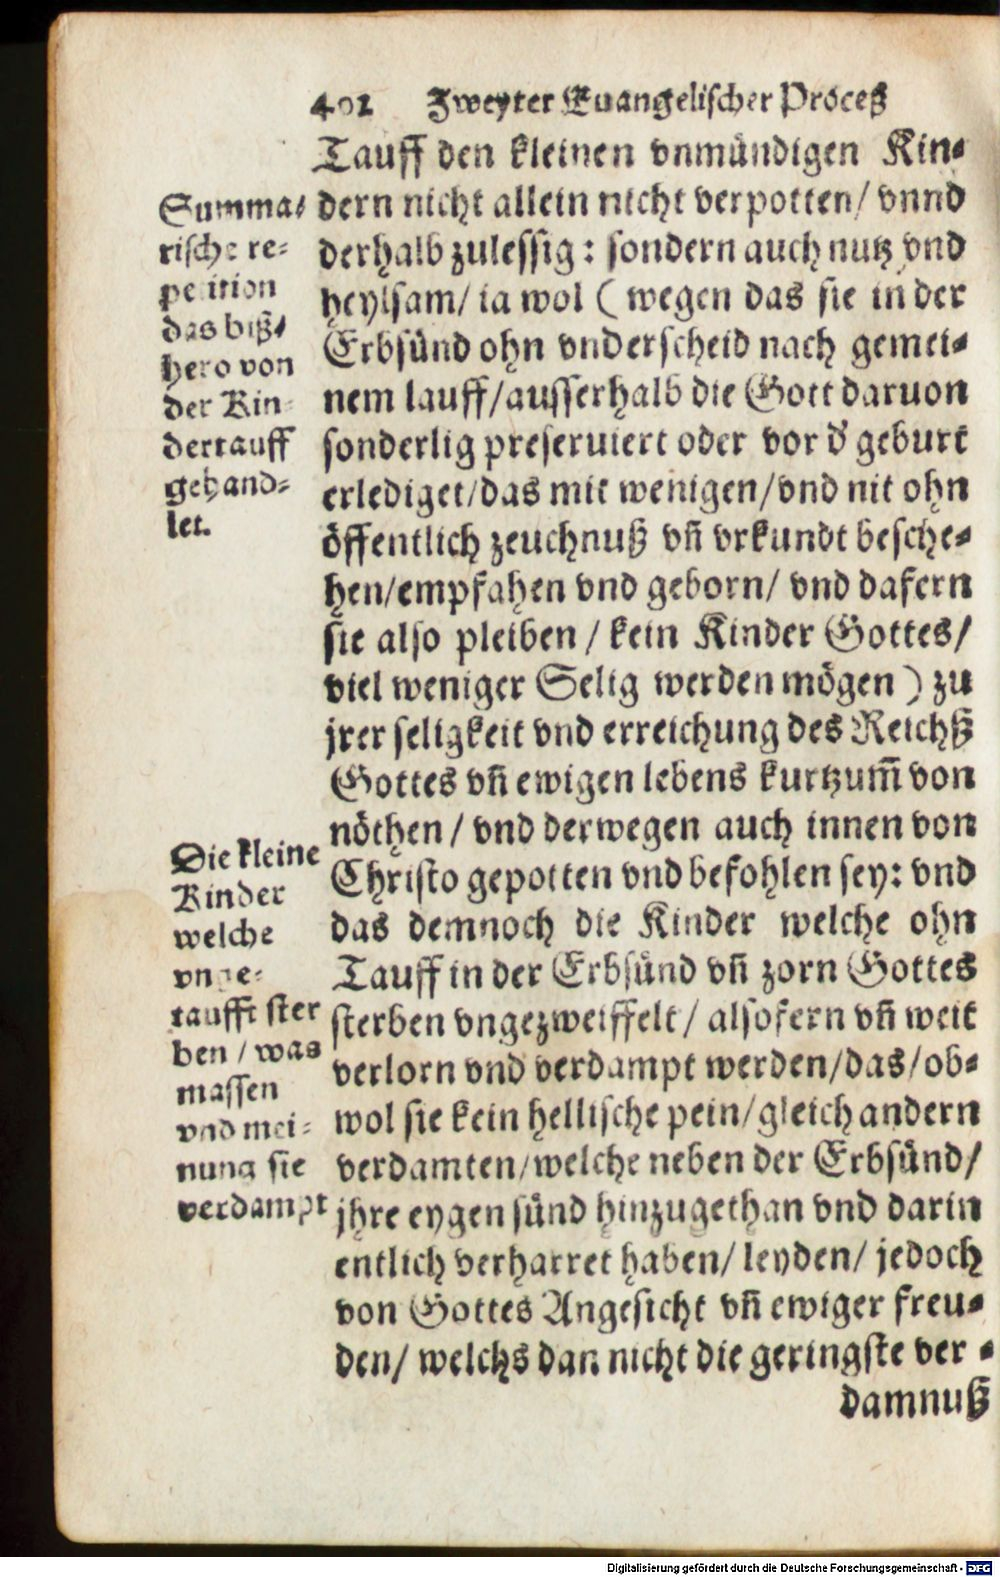 402 Zweyter Euangelischer Proceß
Tauff den kleinen vnmündigen Kin-
dern nicht allein nicht verpotten/ vnnd
derhalb zulessig: sondern auch nutz vnd
heylsam/ ia wol (wegen das sie in der
Erbsünd ohn vnderscheid nach gemei-
nem lauff/ausserhalb die Gott daruon
sonderlig preseruiert oder vor d' geburt
erlediget/das mit wenigen/vnd nit ohn
öffentlich zeuchnuß vn̄ vrkundt besche-
hen/empfahen vnd geborn/ vnd dafern
sie also pleiben / kein Kinder Gottes/
viel weniger Selig werden mögen) zu
jrer seligkeit vnd erreichung des Reichß
Gottes vn̄ ewigen lebens kurtzum̄ von
nöthen / vnd derwegen auch innen von
Christo gepotten vnd befohlen sey: vnd
das demnoch die Kinder welche ohn
Tauff in der Erbsünd vn̄ zorn Gottes
sterben vngezweiffelt/ alsofern vn̄ weit
verlorn vnd verdampt werden/das/ob-
wol sie kein hellische pein/gleich andern
verdamten/welche neben der Erbsünd/
jhre eygen sünd hinzugethan vnd darin
entlich verharret haben/ leyden/ jedoch
von Gottes Angesicht vn̄ ewiger freu-
den/ welchs dan nicht die geringste ver-
damnuß
Summa-
rische re-
petition
das biß-
hero von
der Kin-
dertauff
gehand-
let.
Die kleine
Kinder
welche
vnge-
taufft ster
ben / was
massen
vnd mei-
nung sie
verdampt
Digitalisierung gefördert durch die Deutsche Forschungsgemeinschaft - DFG